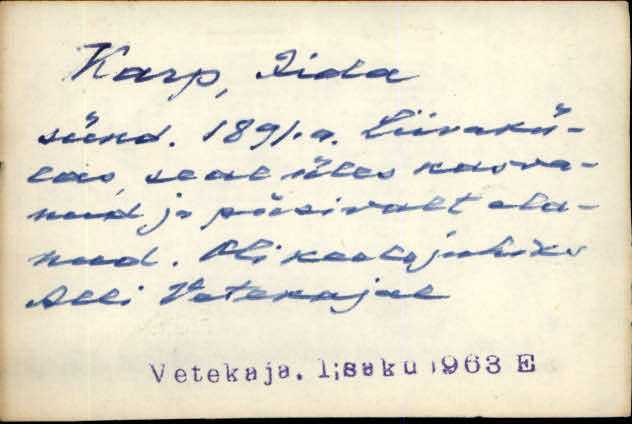 Karp, Iida
sünd. 1891.a. Liivakü-
las, seal üles kasva-
nud ja püsivalt ela-
nud. Oli keelejuhiks
Alli Vetekajal
Vetekaja. Iisaku 1963 E